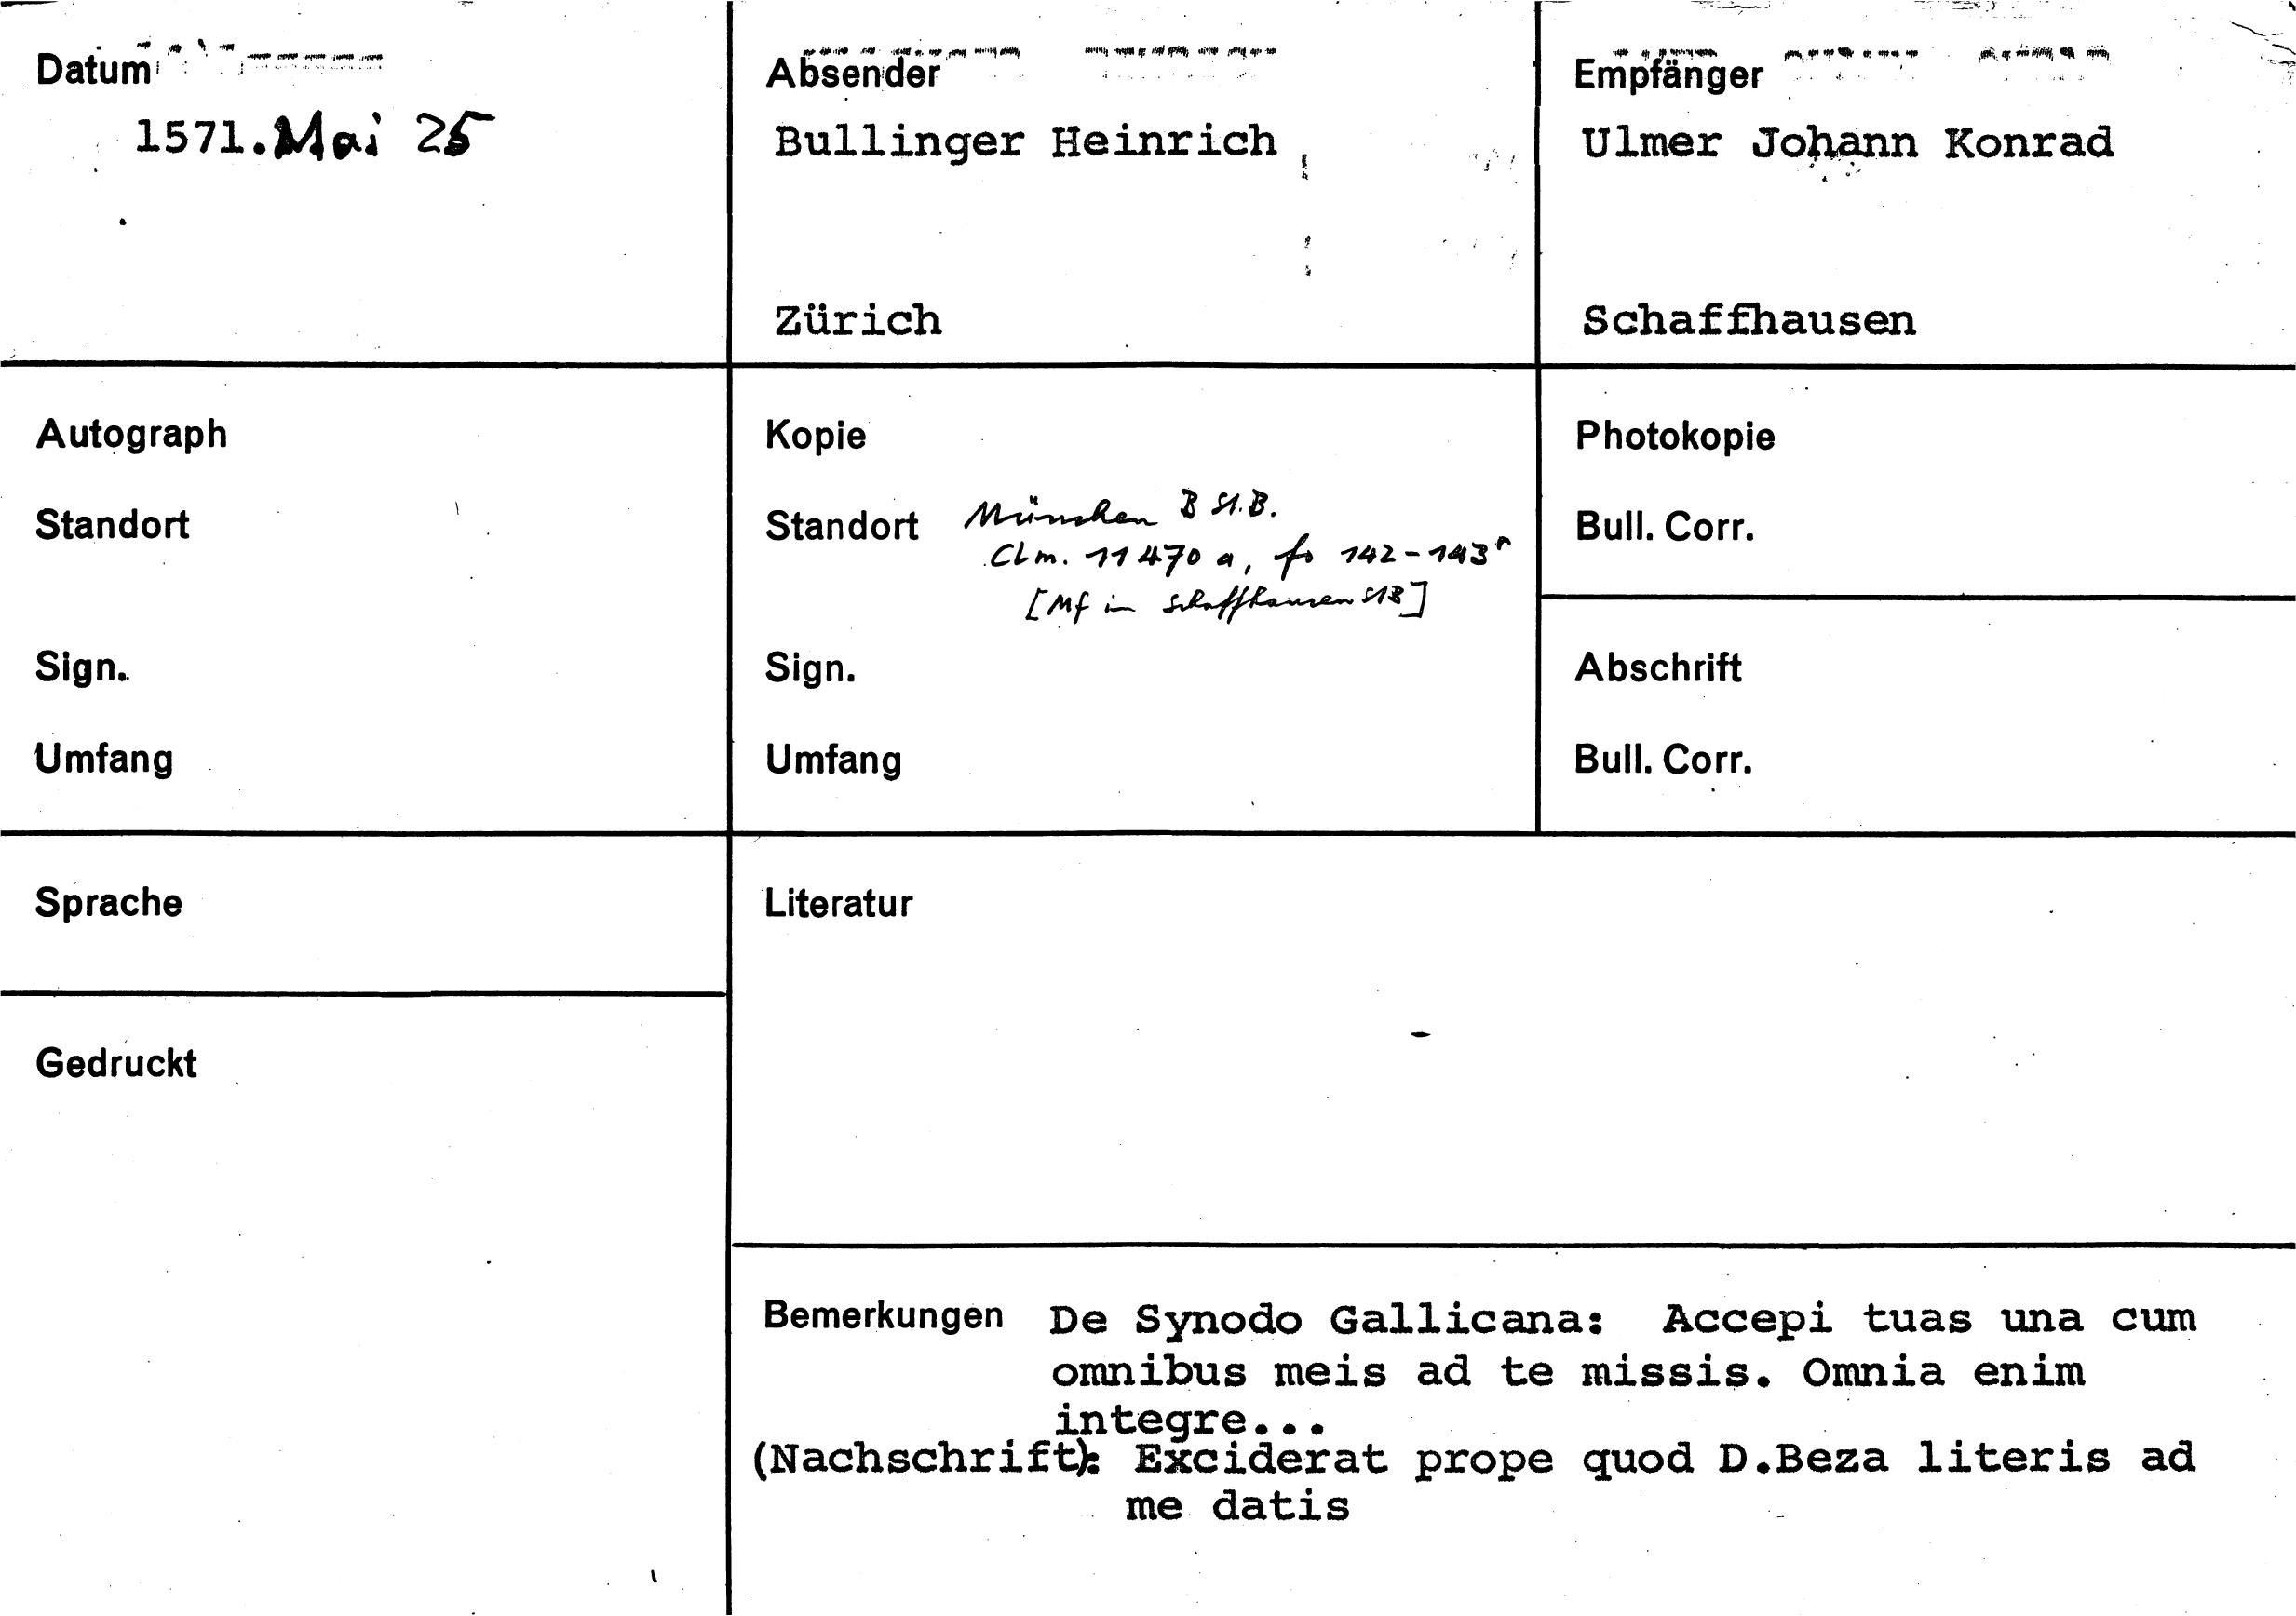 Datum
1571. Mai 25
Absender
Bullinger Heinrich
Zürich
Empfänger
Ulmer Johann Konrad
Schaffhausen
Autograph
Standort
Sign.
Umfang
Kopie
Standort München B St.B.
Clm. 11470 a, fo 142-143r
[Mf in Schaffhausen StB]
Sign.
Umfang
Photokopie
Bull. Corr.
Abschrift
Bull. Corr.
Sprache
Gedruckt
Literatur
Bemerkungen De Synodo Gallicana: Accepi tuas una cum
omnibus meis ad te missis. Omnia enim
integre...
(Nachschrift): Exciderat prope quod D.Beza literis ad
me datis